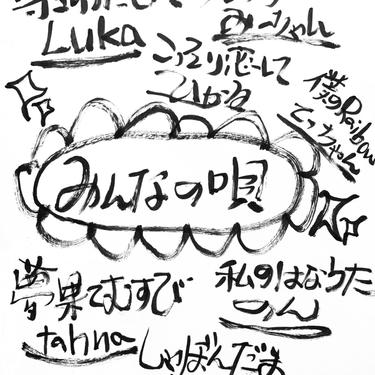 Luka
みーちゃん
こっそり恋して
ひかる
僕のRainbow
てっちゃん
みんなの唄
夢果てむすび
tanna
私のはなうた
のん
しゃぼんだま